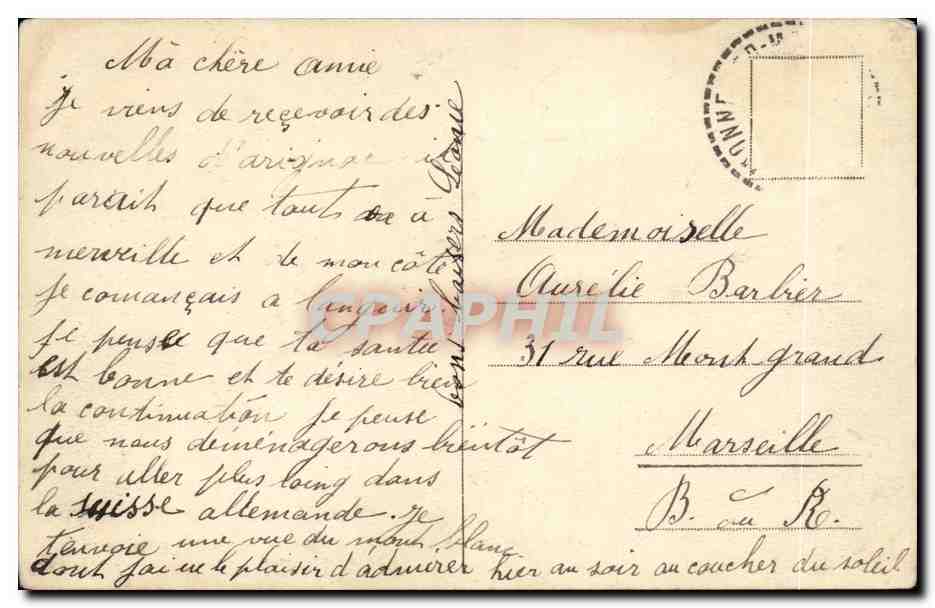 Ma chère amie
je viens de reçevoir des
nouvelles d'arignac il
parait que tout va à
merveille et de mon côté
je comançais a languir.
je pense que ta santée
est bonne et te désire bien
la continuation je pense
que nous déménagerons bientôt
pour aller plus loing dans
la suisse allemande. je
t'envoie une vue du mont blanc
dont j'ai eu le plaisir d'admirer hier au soir au coucher du soleil
bons baisers Léonie
Mademoiselle
Aurélie Barbier
31 rue Mont grand
Marseille
B. du R.
CPAPHIL